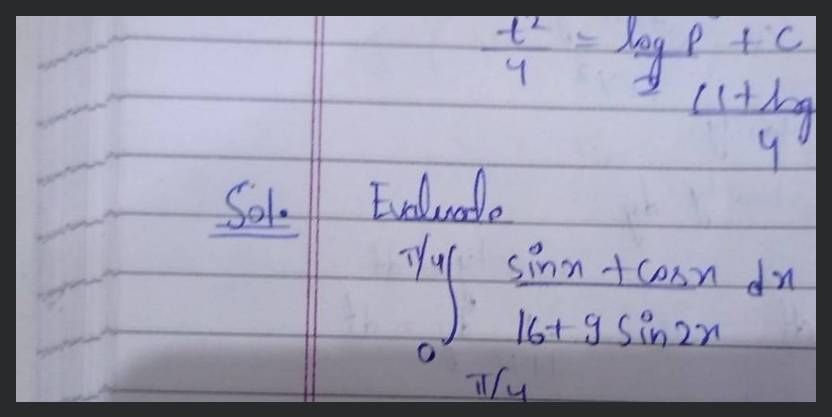 t²/4 = log P + C
(1 + log
4
Sol. Evaluate
π/4 ∫ sinx + cosx dx
0 16 + 9 sin2x
π/4